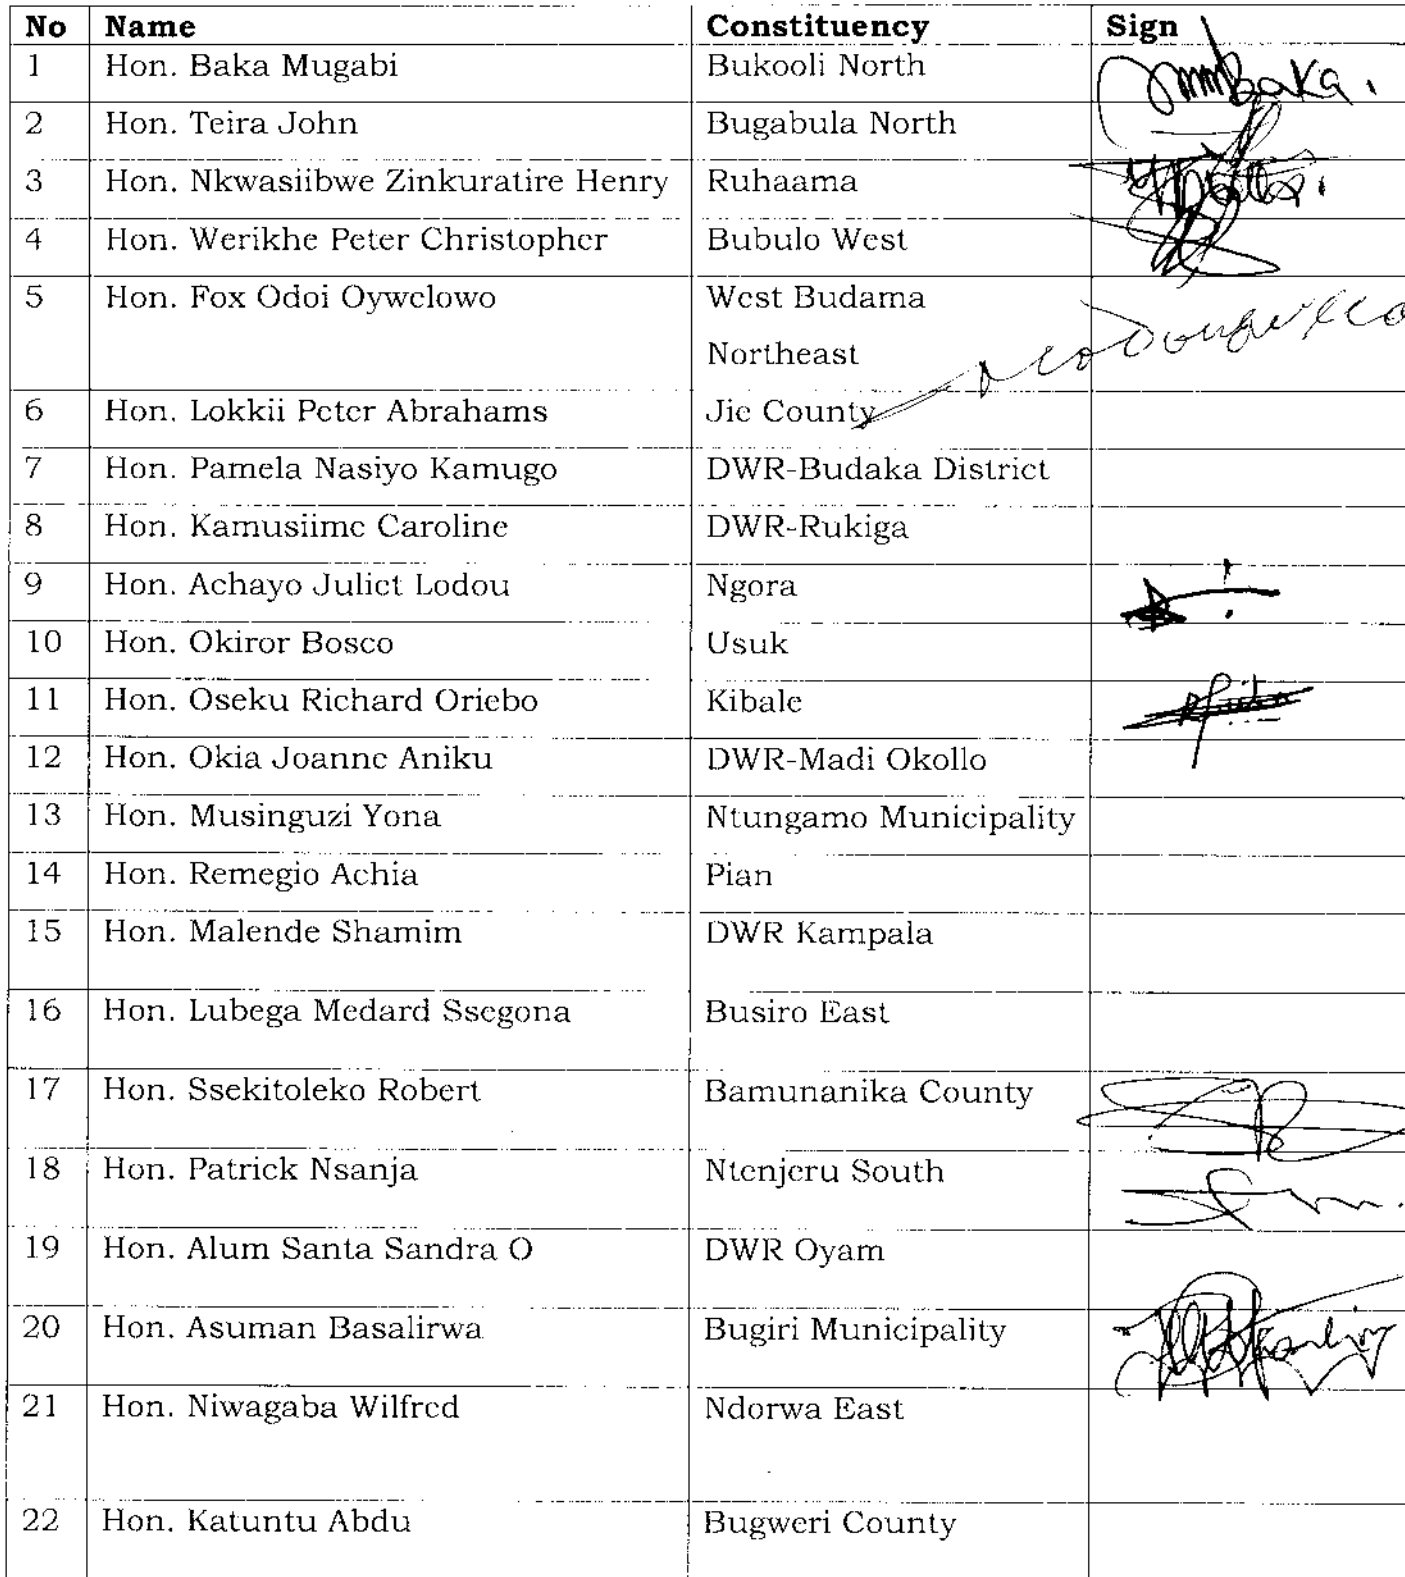 No Name Constituency Sign
1 Hon. Baka Mugabi Bukooli North
2 Hon. Teira John Bugabula North
3 Hon. Nkwasiibwe Zinkuratire Henry Ruhaama
4 Hon. Werikhe Peter Christopher Bubulo West
5 Hon. Fox Odoi Oywelowo West Budama
Northeast
6 Hon. Lokkii Peter Abrahams Jie County
7 Hon. Pamela Nasiyo Kamugo DWR-Budaka District
8 Hon. Kamusiime Caroline DWR-Rukiga
9 Hon. Achayo Juliet Lodou Ngora
10 Hon. Okiror Bosco Usuk
11 Hon. Oseku Richard Oriebo Kibale
12 Hon. Okia Joanne Aniku DWR-Madi Okollo
13 Hon. Musinguzi Yona Ntungamo Municipality
14 Hon. Remegio Achia Pian
15 Hon. Malende Shamim DWR Kampala
16 Hon. Lubega Medard Ssegona Busiro East
17 Hon. Ssekitoleko Robert Bamunanika County
18 Hon. Patrick Nsanja Ntenjeru South
19 Hon. Alum Santa Sandra O DWR Oyam
20 Hon. Asuman Basalirwa Bugiri Municipality
21 Hon. Niwagaba Wilfred Ndorwa East
22 Hon. Katuntu Abdu Bugweri County